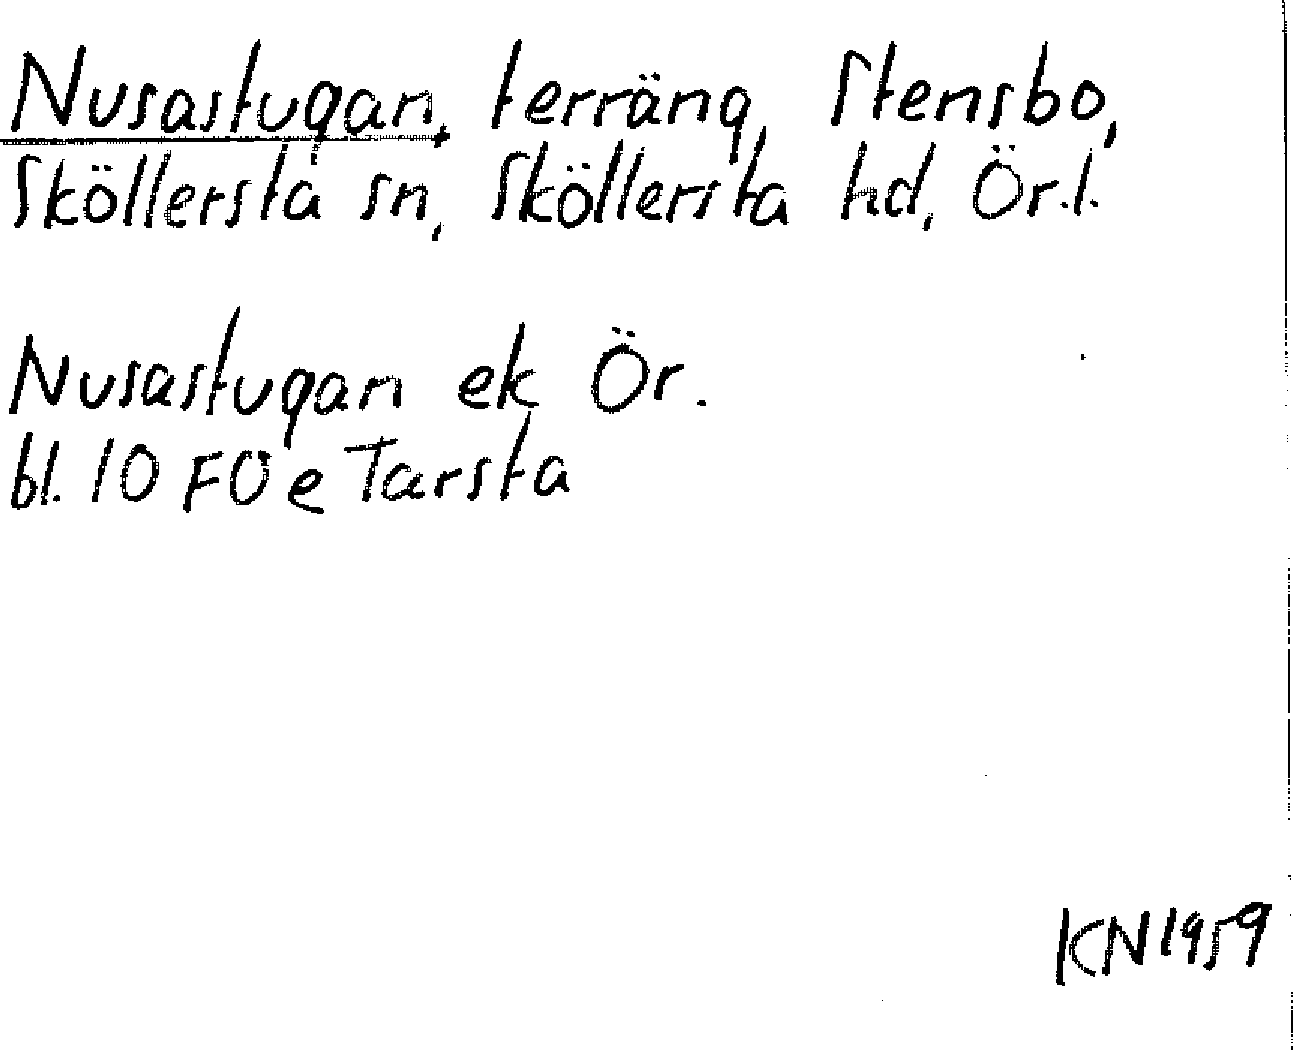 Nusastugan, terräng, Stensbo,
Sköllersta sn, Sköllersta hd, Ör.l.
Nusastugan ek Ör.
bl. 10 FÖ e Tarsta
KN 1959